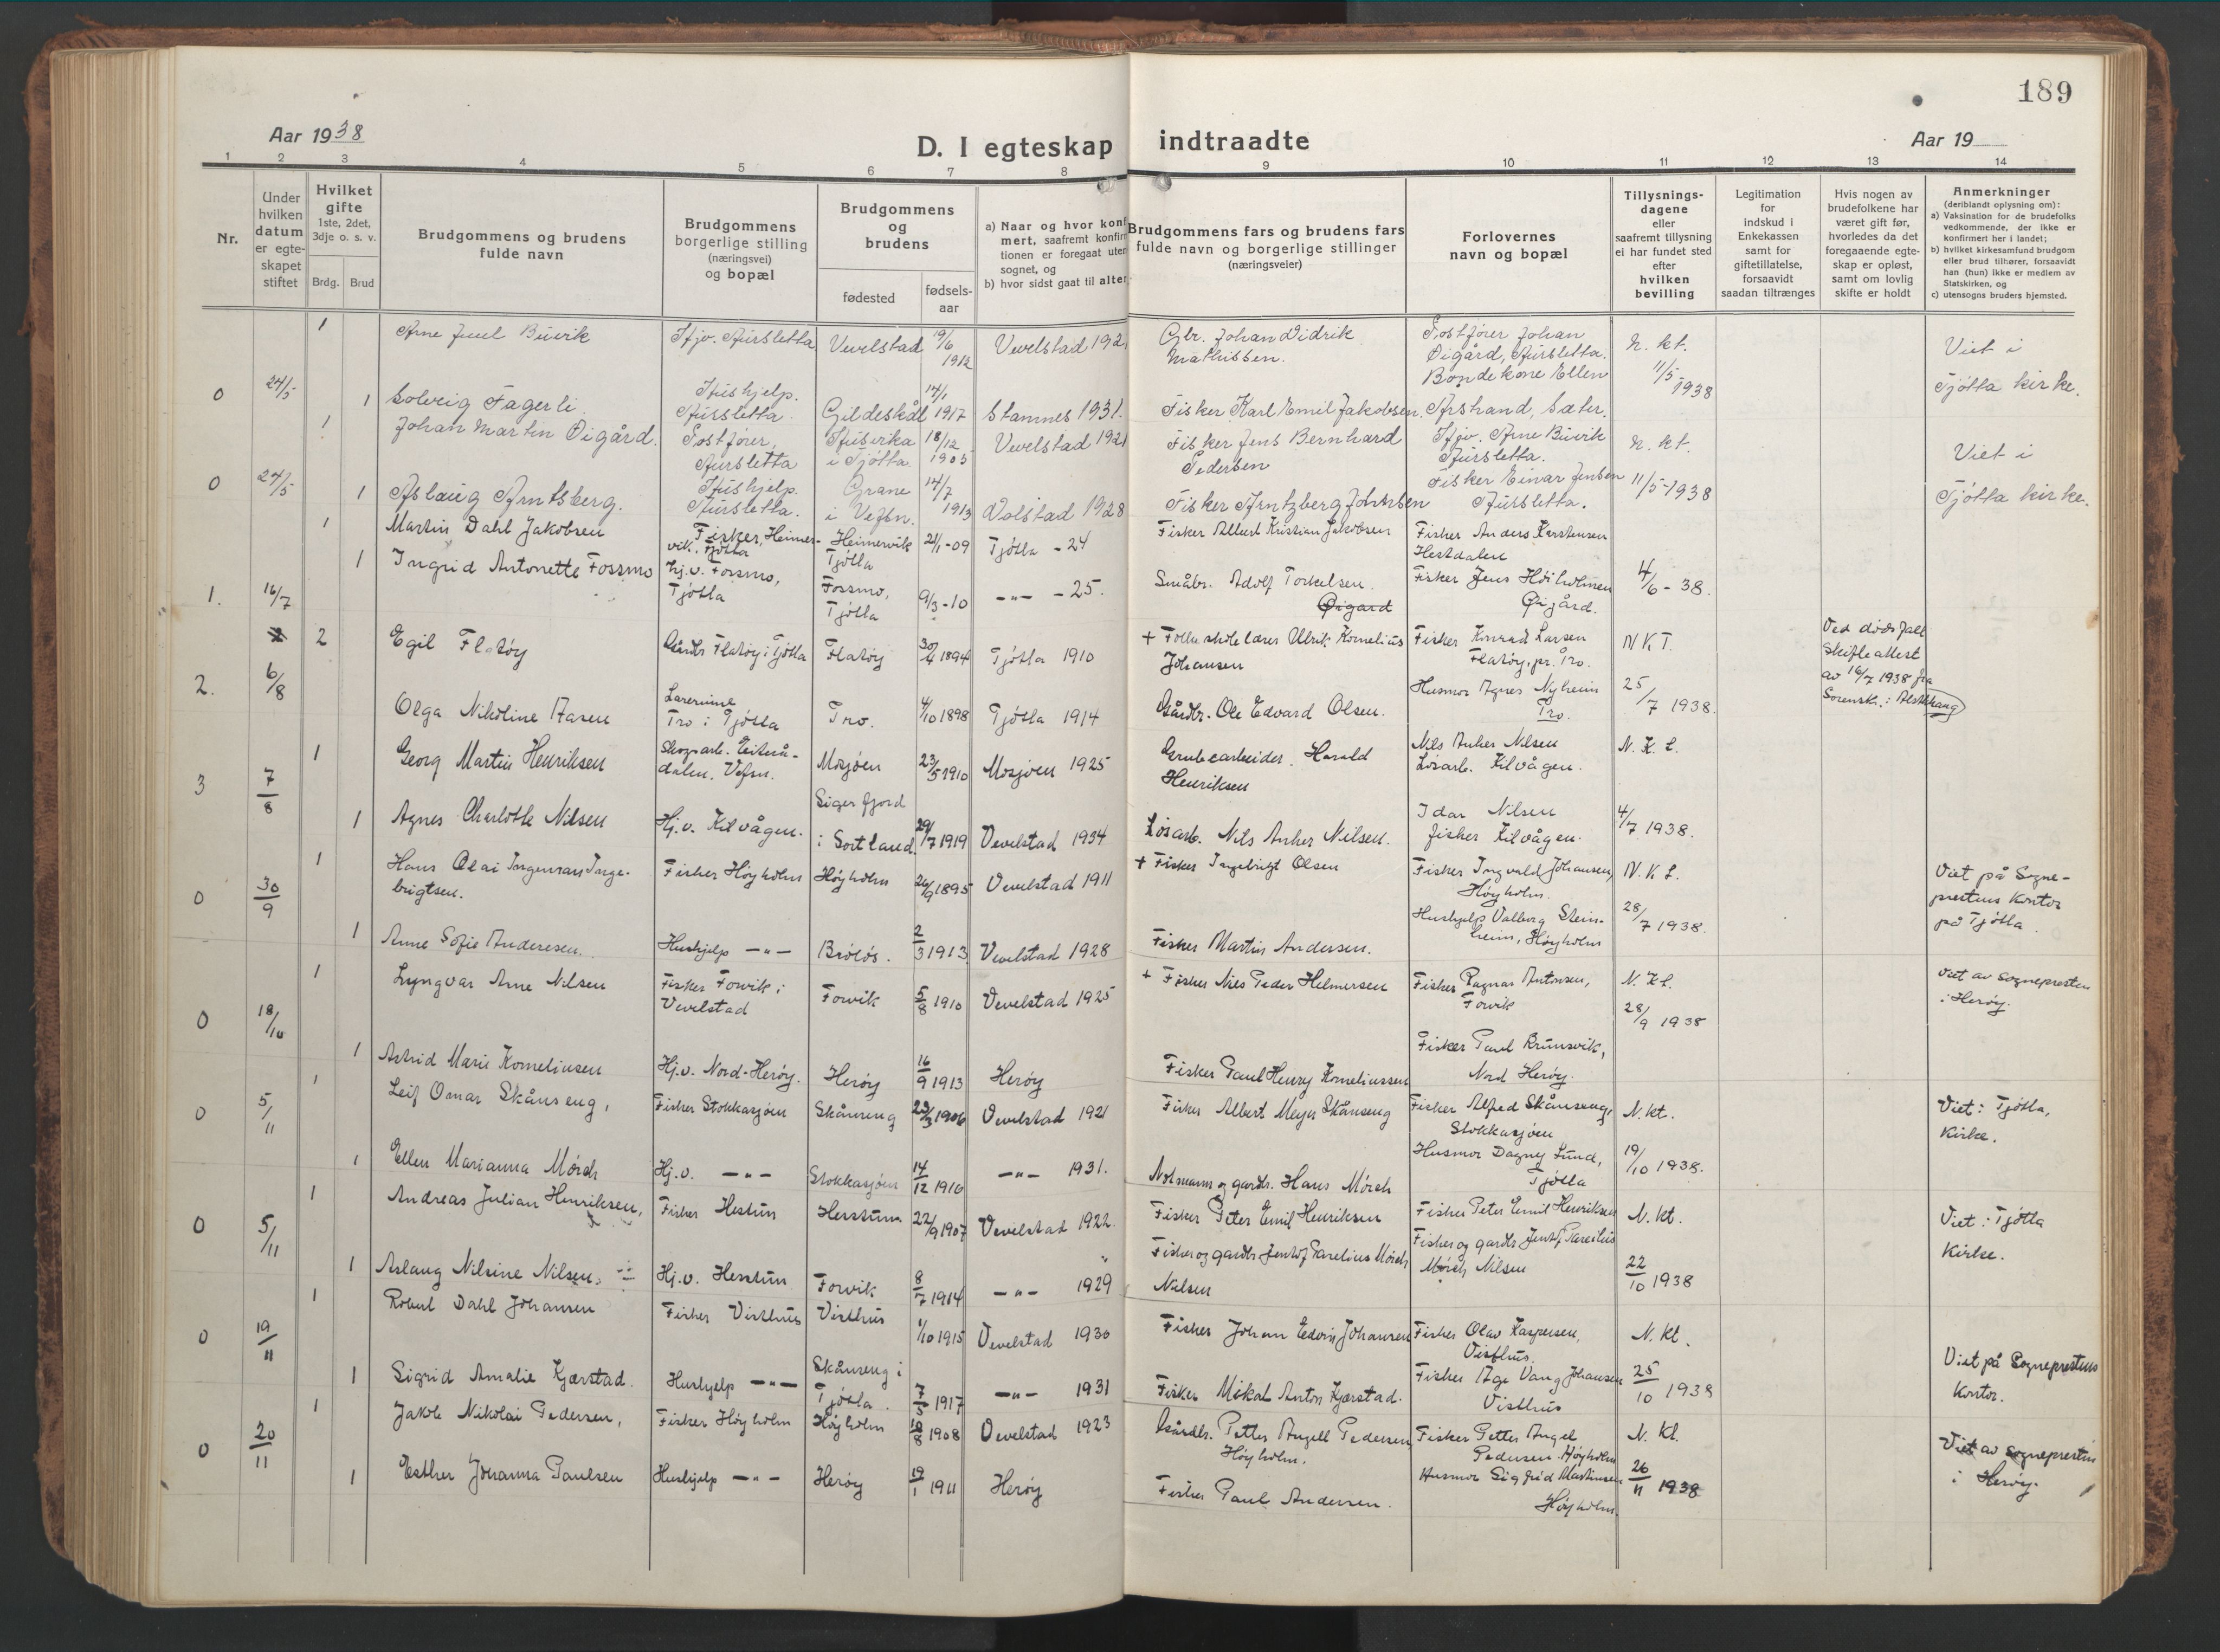 189
Aar 1938
D. I egteskap indtraadte
Aar 19
1 2 3 4 5 6 7 8 9 10 11 12 13 14
Nr.
Under
hvilken
datum
er egte-
skapet
stiftet
Hvilket
gifte
1ste, 2det,
3dje o. s. v.
Brdg. Brud
Brudgommens og brudens
fulde navn
Brudgommens
borgerlige stilling
(næringsvei)
og bopæl
Brudgommens
og
brudens
fødested
fødsels-
aar
a) Naar og hvor konf
mert, saafremt konfir
tionen er foregaat uten
sognet, og
b) hvor sidst gaat til alter
Brudgommens fars og brudens fars
fulde navn og borgerlige stillinger
(næringsveier)
Forlovernes
navn og bopæl
Tillysnings-
dagene
eller
saafremt tillysning
ei har fundet sted
efter
hvilken
bevilling
Legitimation
for
indskud i
Enkekassen
samt for
giftetillatelse,
forsaavidt
saadan tiltrænges
Hvis nogen av
brudefolkene har
været gift før,
hvorledes da det
foregaaende egte-
skap er opløst,
samt om lovlig
skifte er holdt
Anmerkninger
(deriblandt oplysning om):
a) Vaksination for de brudefolks
vedkommende, der ikke er
konfirmert her i landet;
b) hvilket kirkesamfund brudgom
eller brud tilhører, forsaavidt
han (hun) ikke er medlem av
Statskirken, og
c) utensogns bruders hjemsted.
0 24/5
1 Arne Juul Buvik
Hjv. Aursletta
Vevelstad 19/6 1912
Vevelstad 192
Gbr. Johan Didrik
Mathissen.
Postfører Johan
Øigård, Aursletta.
Bondekone Ellen
Arstrand, Sæter.
N. kt.
11/5 1938
Viet i
Tjøtta kirke.
1 Solveig Fagerli
Hushjelp.
Aursletta.
Gildeskål 14/1 1917
Stamnes 1931.
Fisker Karl Emil Jakobsen.
0 24/5
1 Johan Martin Øigård.
Postfører,
Aursletta
Husvika
i Tjøtta 18/12 1905
Vevelstad 1921
Fisker Jens Bernhard
Pedersen
Hjv. Arne Buvik
Aursletta.
Fisker Einar Jensen
Aursletta.
N. kt.
11/5-1938
Viet i
Tjøtta kirke.
1 Aslaug Arntsberg.
Hushjelp.
Aursletta.
Grane
i Vefsn. 14/7 1913
Dolstad 1928
Fisker Arntzberg Johnsen
1. 16/7
1 Martin Dahl Jakobsen
Fisker, Heimer-
vik. Tjøtta
Heimervik
Tjøtta 21/1-09
Tjøtta - 24
Fisker Albert Kristian Jakobsen
Fisker Anders Karstensen
Hestdalen
Fisker Jens Høiholmen
Øigård.
4/6 - 38.
1 Ingrid Antonette Fossmo
hj.v. Fossmo,
Tjøtta
Fossmo,
Tjøtta 9/3-10
-"- - 25.
Småbr. Adolf Torkelsen.
Øigard
2. 6/8
2 Egil Flatøy
Gårdbr Flatøy i Tjøtta
Flatøy 30/4 1894
Tjøtta 1910
+ Folkeskolelærer Ulrik Kornelius
Johansen
Fisker Konrad Larsen
Flatøy, pr. Tro.
Husmor Agnes Nyheim
Tro.
N K T.
25/7 1938.
Ved dødsfall
Skifteattest
av 16/7 1938 fra
Sorenskr. i Alstahaug
Olga Nikoline Aasen
Lærerinne
Tro i Tjøtta
Tro. 4/10 1898
Tjøtta 1914
Gårdbr. Ole Edvard Olsen.
3 7/8
1 Georg Martin Henriksen
Skogsarb. Eiterå-
dalen. Vefsn.
Mosjøen 23/5 1910
Mosjøen 1925
Grubearbeider. Harald
Henriksen
Nils Anker Nilsen
Løsarb. Kilvågen.
Idar Nilsen
fisker Kilvågen.
N. K. t.
4/7 1938.
1 Agnes Charlotte Nilsen
Hj.v. Kilvågen.
Sigerfjord
i Sortland. 29/7 1919
Vevelstad 1934
Løsarb. Nils Anker Nilsen.
0 30/9
1 Hans Olai Ingemar Inge-
brigtsen.
Fisker Høyholm
Høyholm 26/9 1895
Vevelstad 1911
+ Fisker Ingebrigt Olsen
Fisker Ingvald Johansen,
Høyholm.
Hushjelp Valborg Stein-
heim, Høyholm
N. K t.
28/7 1938.
Viet på Sogne-
prestens Kontor
på Tjøtta.
1 Anne Sofie Andersen.
Hushjelp -"-
Brøløs. 2/3 1913
Vevelstad 1928
Fisker Martin Andersen.
0 18/10
1 Lyngvar Arne Nilsen
Fisker Forvik i
Vevelstad
Forvik 5/8 1910
Vevelstad 1925
+ Fisker Nils Peder Helmersen
Fisker Ragnar Antonsen,
Forvik
Fisker Paul Brunsvik,
Nord Herøy.
N. Kt.
28/9 1938
Viet av Sognepresten
i Herøy.
1 Astrid Marie Korneliusen
Hj.v. Nord-Herøy.
Herøy 16/9 1913
Herøy
Fisker Paul Henry Korneliussen
0 5/11
1 Leif Omar Skånseng,
Fisker Stokkasjøen
Skånseng 23/3 1906
Vevelstad 1921
Fisker Albert Meyer Skånseng
Fisker Alfred Skånseng,
Stokkasjøen
Husmor Dagny Lund,
Tjøtta
N. kt.
19/10 1938.
Viet i Tjøtta,
Kirke.
1 Ellen Marianna Mørch
Hj.v. -"-
Stokkasjøen 14/12 1916
-"- 1931.
Notmann og gardbr. Hans Mørch
0 5/11
1 Andreas Julian Henriksen,
Fisker Hestun
Hesstun 22/9 1907
Vevelstad 1922.
Fisker Peter Emil Henriksen
Fisker Peter Emil Henriksen
Fisker og gardbr Jentof Parelius
Mørch Nilsen
N. kt.
22/10 1938
Viet i Tjøtta
Kirke.
1 Aslaug Nilsine Nilsen,
Hj.v. Hesstun
Forvik 8/7 1914
-"- 1929
Fisker og gardbr Jentof Parelius Mørch
Nielsen
0 19/11
1 Robert Dahl Johansen
Fisker Visthus
Visthus 1/10 1915
Vevelstad 1930
Fisker Johan Edvin Johansen
Fisker Olav Kaspersen,
Visthus.
Fisker Age Vang Johansen
Visthus
N. kt.
25/10 1938
Viet på Sogneprestens
Kontor.
1 Sigrid Amalie Kjærstad.
Hushjelp -"-
Skånseng i
Tjøtta. 7/5 1917
-"- 1931
Fisker Mikal Anton Kjærstad.
0 20/11
1 Jakob Nikolai Pedersen,
Fisker Høyholm
Høyholm 18/8 1908
Vevelstad 1923
Gårdbr. Petter Angell Pedersen
Høyholm.
Fisker Petter Angel
Pedersen. Høyholm
Husmor Sigfrid Martinsen
Høyholm.
N. Kt.
26/11 1938
Viet av sognepresten
i Herøy.
1 Esther Johanna Paulsen
Hushjelp -"-
Herøy 19/1 1911
Herøy
Fisker Paul Andersen.